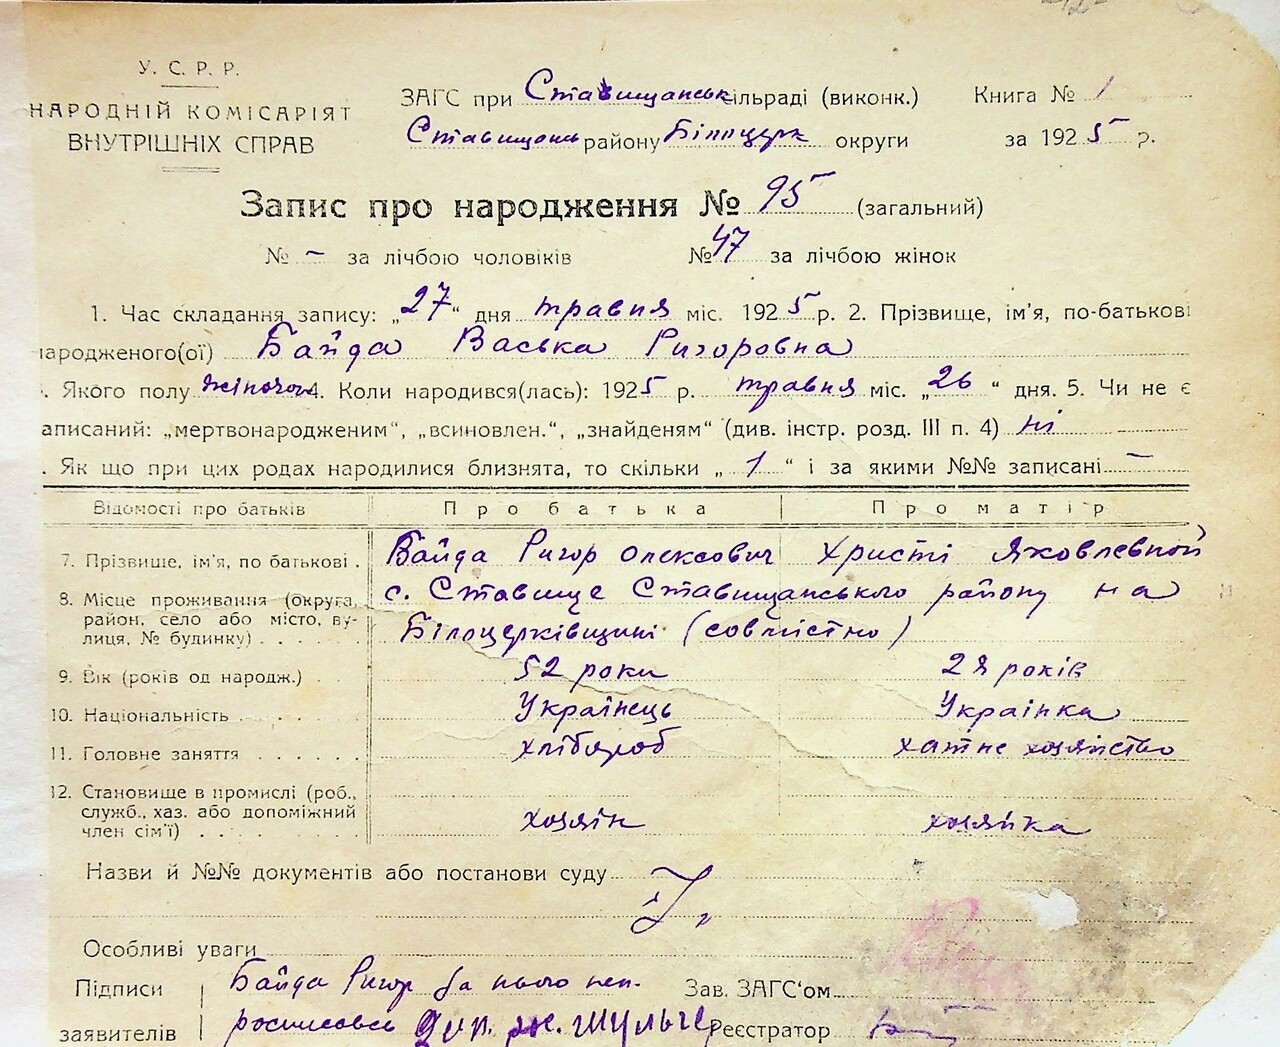 У. С. Р. Р.
НАРОДНІЙ КОМІСАРІЯТ
ВНУТРІШНІХ СПРАВ
ЗАГС при Ставищанськ сільраді (виконк.) Книга № 1
Ставищань району Білоцерк округи за 1925 р.
Запис про народження № 95 (загальний)
№ – за лічбою чоловіків № 47 за лічбою жінок
1. Час складання запису: „27“ дня травня міс. 1925 р. 2. Прізвище, ім'я, по-батькові
народженого(ої) Байда Васька Ригоровна
. Якого полу жіночого 4. Коли народився(лась): 1925 р. травня міс. „26“ дня. 5. Чи не є
аписаний: „мертвонародженим“, „всиновлен.“, „знайденям“ (див. інстр. розд. III п. 4) ні
. Як що при цих родах народилися близнята, то скільки „1“ і за якими №№ записані –
Відомості про батьків Про батька Про матір
7. Прізвище, ім'я, по батькові . Байда Ригор Олексович Христі Яковлевной
8. Місце проживання (округа, район, село або місто, ву-
лиця, № будинку) . . . . с. Ставище Ставищанського району на
Білоцерківщині (совмістно)
9. Вік (років од народж.) . 52 роки 28 років
10. Національність . . . . . Українець Українка
11. Головне заняття . . . . . . хлібороб хатне хозяйство
12. Становище в промислі (роб.,
служб., хаз. або допоміжний
член сім'ї) . . . . хозяін хозяйка
Назви й №№ документів або постанови суду
Особливі уваги
Підписи Байда Ригор за нього неп. Зав. ЗАГС'ом
заявителів росписовсь Реєстратор